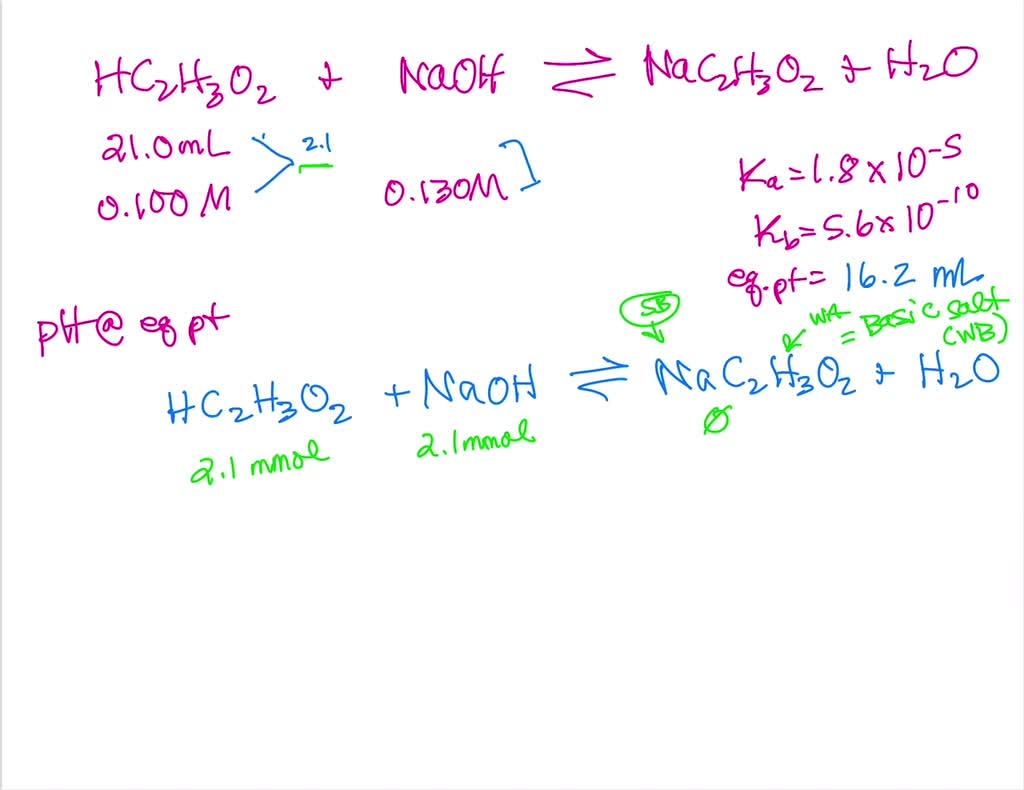 HC₂H₃O₂ + NaOH ⇌ NaC₂H₃O₂ + H₂O
21.0mL 2.1
0.100 M 0.130M
Ka = 1.8 x 10⁻⁵
Kb = 5.6 x 10⁻¹⁰
eq.pt = 16.2 mL
pH @ eq pt
SB WA = Basic salt (WB)
HC₂H₃O₂ + NaOH ⇌ NaC₂H₃O₂ + H₂O
2.1 mmol 2.1 mmol ∅